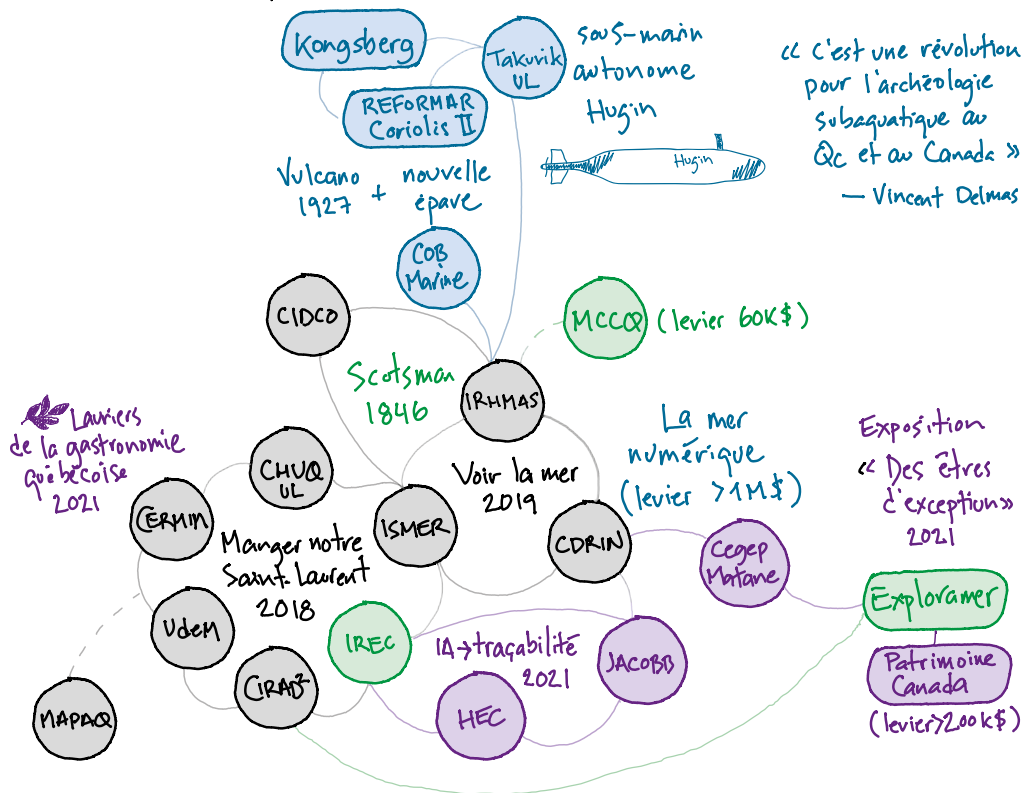 Kongsberg
Takuvik
UL
REFORMAR
Coriolis II
sous-marin
autonome
Hugin
Hugin
« C'est une révolution
pour l'archéologie
subaquatique au
Qc et au Canada »
— Vincent Delmas
Vulcano + nouvelle
1927 épave
COB
Marine
CIDCO
MCCQ (levier 60K$)
Scotsman
1846
IRHMAS
Lauriers
de la gastronomie
québécoise
2021
CHUQ
UL
CERMIM
ISMER
Voir la mer
2019
La mer
numérique
(levier >1M$)
CDRIN
Exposition
« Des êtres
d'exception»
2021
Manger notre
Saint-Laurent
2018
Cegep
Matane
Exploramer
UdeM
IREC
IA→traçabilité
2021
JACOBB
Patrimoine
Canada
(levier>200K$)
CIRAD²
HEC
MAPAQ